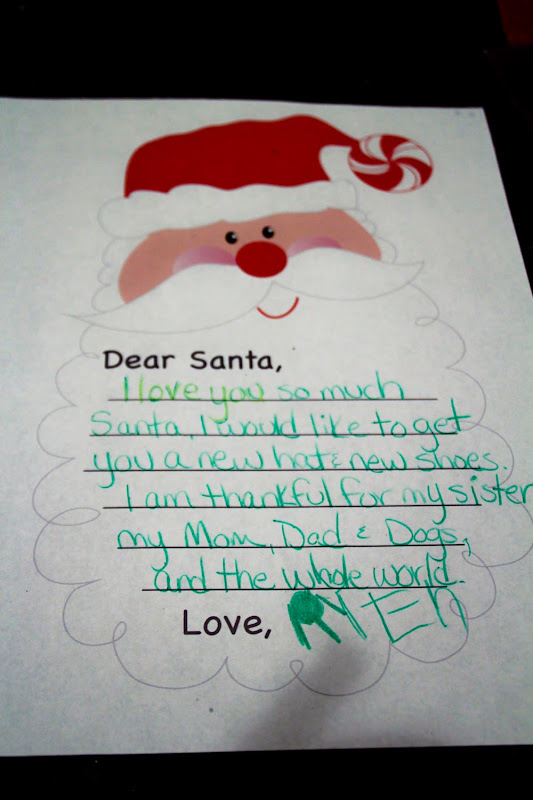 Dear Santa,
I love you so much
Santa, I would like to get
you a new hat & new shoes.
I am thankful for my sister
my Mom, Dad & Dogs,
and the whole world.
Love, RYEn